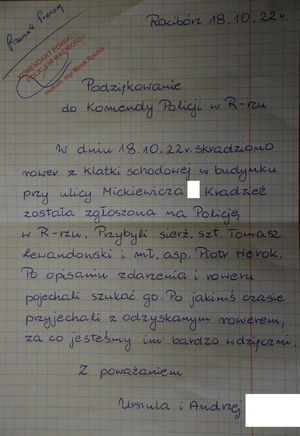 Racibórz 18.10.22r.
KOMENDANT POWIA
POLICJI W RACIBORZU
Podziękowanie
do Komendy Policji w R-rzu
W dniu 18.10.22r. skradziono
rower z klatki schodowej w budynku
przy ulicy Mickiewicza Kradzież
została zgłoszona na Policję
w R-rzu. Przybyli sierż. szt. Tomasz
Lewandowski i mł. asp. Piotr Herok.
Po opisaniu zdarzenia i roweru
pojechali szukać go. Po jakimś czasie
przyjechali z odzyskanym rowerem,
za co jesteśmy im bardzo wdzięczni.
Z poważaniem
Urszula i Andrzej